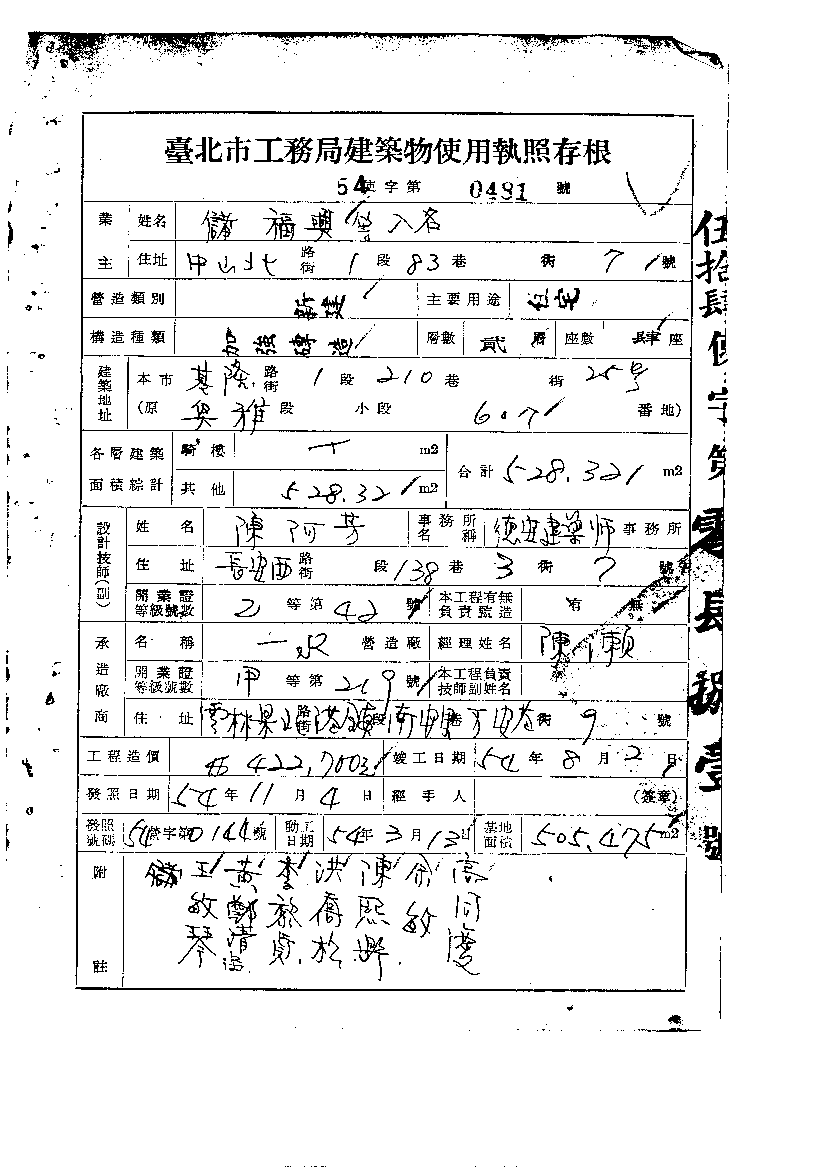 臺北市工務局建築物使用執照存根
54使字第 0481 號
業主 姓名 儲福興等八名
住址 中山北路街 1段 83巷 街 71號
營造類別 新建 主要用途 住宅
構造種類 加強磚造 層數 貳層 座數 肆座
建築地址 本市 基隆路街 1段 210巷 街 25号
(原 興雅段 小段 607 番地)
各層建築面積綜計 騎樓 m2 合計 528.321 m2
其他 528.321 m2
設計技師(副) 姓名 陳阿芳 事務所名稱 德安建築師事務所
住址 長安西路街 段 138巷 3街 7號
開業證等級號數 乙等第42號 本工程有無負責監造 有 無
承造廠商 名稱 營造廠 經理姓名 陳
開業證等級號數 甲等第219號 本工程負責技師副姓名
住址 雲林縣 路街 港鎮段 巷 街 9 號
工程造價 422,700 竣工日期 54年8月2日
發照日期 54年11月4日 經手人 (簽章)
發照號碼 54營字第0144號 動工日期 54年3月13日 基地面積 505.475m2
附註 高同慶
余敏
陳熙
洪喬松
李毅貞
黃鄭清
王敏琴
儲
伍拾肆使字第零肆捌壹號